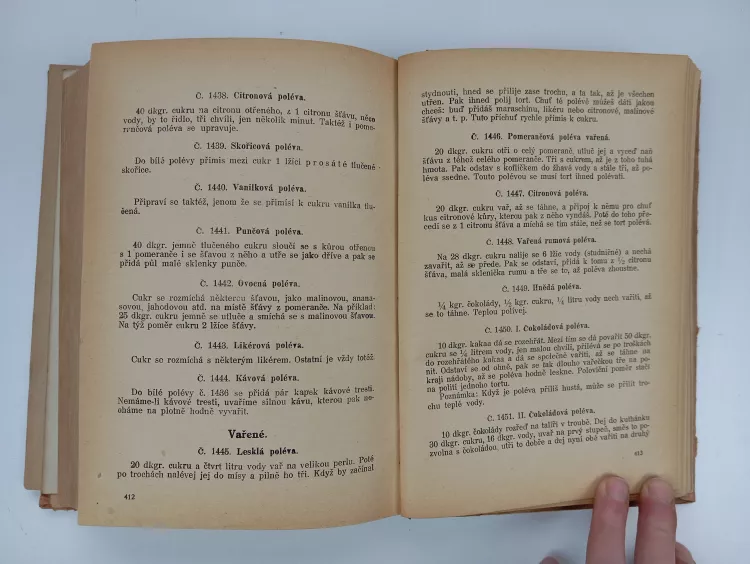 Č. 1438. Citronová poléva.
40 dkgr. cukru na citronu otřeného, z 1 citronu šťávu, něco
vody, by to řídlo, tři chvíli, jen několik minut. Taktéž i pome-
rančová poléva se upravuje.
Č. 1439. Skořicová poléva.
Do bílé polévy přimis mezi cukr 1 lžíci prosáté tlučené
skořice.
Č. 1440. Vanilková poléva.
Připraví se taktéž, jenom že se přimísí k cukru vanilka tlu-
čená.
Č. 1441. Punčová poléva.
40 dkgr. jemně tlučeného cukru sloučí se s kůrou otřenou
s 1 pomeranče i se šťavou z něho a utře se jako dříve a pak se
přidá půl malé sklenky punče.
Č. 1442. Ovocná poléva.
Cukr se rozmíchá některou šťavou, jako malinovou, anana-
sovou, jahodovou atd. na místě šťávy z pomeranče. Na příklad:
25 dkgr. cukru jemně se utluče a smíchá se s malinovou šťavou.
Na týž poměr cukru 2 lžíce šťávy.
Č. 1443. Likérová poléva.
Cukr se rozmíchá s některým likérem. Ostatní je vždy totéž
Č. 1444. Kávová poléva.
Do bílé polévy č. 1436 se přidá pár kapek kávové tresti.
Nemáme-li kávové tresti, uvaříme silnou kávu, kterou pak ne-
cháme na plotně hodně vyvařit.
Vařené.
Č. 1445. Lesklá poléva.
20 dkgr. cukru a čtvrt litru vody vař na velikou perlu. Poté
po trochách nalévej jej do mísy a pilně ho tři. Když by začínal
412
stydnouti, hned se přilije zase trochu, a ta tak, až je všechen
utřen. Pak ihned polij tort. Chuť té polévě můžeš dáti jakou
chceš: buď přidáš maraschinu, likéru nebo citronové, malinové
šťávy a t. p. Tuto příchuť rychle přimísí k cukru.
Č. 1446. Pomerančová poléva vařená.
20 dkgr. cukru otři o celý pomeranč, utluč jej a vyceď naň
šťávu z téhož celého pomeranče. Tři s cukrem, až je z toho tuhá
hmota. Pak odstav s koflíčkem do žhavé vody a stále tři, až po-
léva ssedne. Touto polévou se musí tort ihned polévati.
Č. 1447. Citronová poléva.
20 dkgr. cukru vař, až se táhne, a připoj k němu pro chuť
kus citronové kůry, kterou pak z něho vyndáš. Poté do toho pře-
cedí se z 1 citronu šťáva a míchá se tím stále, než se tort polévá.
Č. 1448. Vařená rumová poléva.
Na 28 dkgr. cukru nalije se 6 lžic vody (studničné) a nechá
zavařit, až se přede. Pak se odstaví, přidá k tomu z ½ citronu
šťáva, malá sklenička rumu a tře se to, až poléva zhoustne.
Č. 1449. Hnědá poléva.
¼ kgr. čokolády, ½ kgr. cukru, ¼ litru vody nech vařiti, až
se to táhne. Teplou polívej.
Č. 1450. I. Čokoládová poléva.
10 dkgr. kakaa dá se rozehřát. Mezi tím se dá povařit 50 dkgr.
cukru se ¼ litrem vody, jen malou chvíli, přilévá se po troškách
do rozehřátého kakaa a dá se společně vařiti, až se táhne na
nit. Odstaví se od ohně, pak se tak dlouho vařečkou tře na po-
kraji nádoby, až se poléva hodně leskne. Poloviční poměr stačí
na politi jednoho tortu.
Poznámka: Když je poléva příliš hustá, může se přilít tro-
chu teplé vody.
Č. 1451. II. Čokoládová poléva.
10 dkgr. čokolády rozřeď na talíři v troubě. Dej do kuthánku
30 dkgr. cukru, 16 dkgr. vody, uvař na prvý stupeň, směs to po-
zvolna s čokoládou, utři to dobře a dej nyní obě vařiti na druhý
413